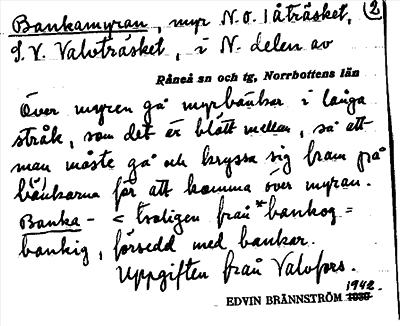 Bankamyran, myr N.O. Iåträsket, 2
S.V. Valvträsket, i N. delen av
Råneå sn och tg, Norrbottens län
Över myren gå myrbänkar i långa
stråk, som det är blött mellan, så att
man måste gå och kryssa sig fram på
bänkarna för att komma över myran.
Banka- < troligen från *bankog =
bankig, försedd med bankar.
Uppgiften från Valvfors.
1942
EDVIN BRÄNNSTRÖM 1939